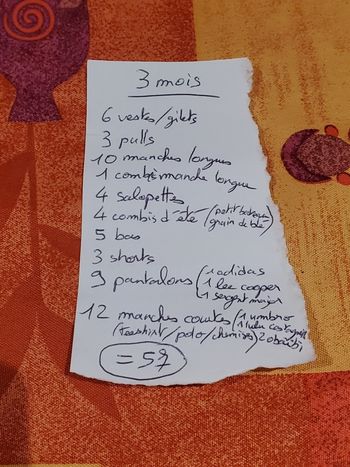 3 mois
6 vestes/gilets
3 pulls
10 manches longues
1 combi manche longue
4 salopettes
4 combis d'été (petit bateau
grain de blé)
5 bas
3 shorts
9 pantalons (1 adidas
1 lee cooper
1 sergent major
12 manches courtes (1 umbro
(teeshirt/polo/chemises) 2 obaibi
= 57